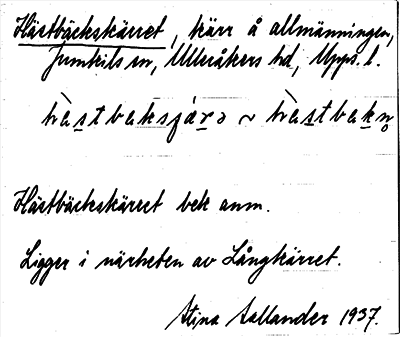 Hästbäckskärret, kärr å allmänningen,
Jumkils sn, Ulleråkers hd, Upps. l.
hàstbaksjárə ~ hàstbakn̥
Hästbäckskärret bek anm.
Ligger i närheten av Långkärret.
Stina Sallander 1937.